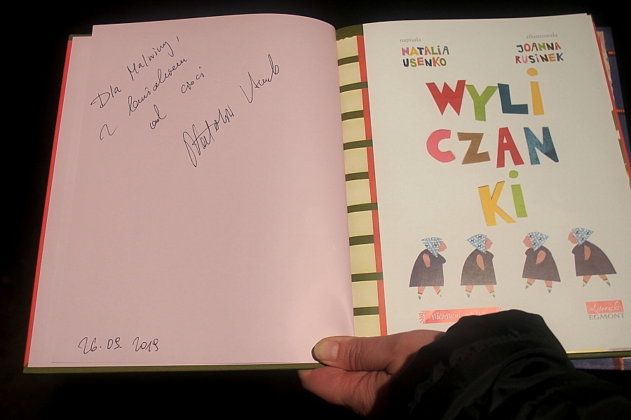 Dla Malwiny,
z
od cioci
Natalii Usenko
26.09.2019
napisała
NATALIA
USENKO
zilustrowała
JOANNA
RUSINEK
WYLI
CZAN
KI
EGMONT